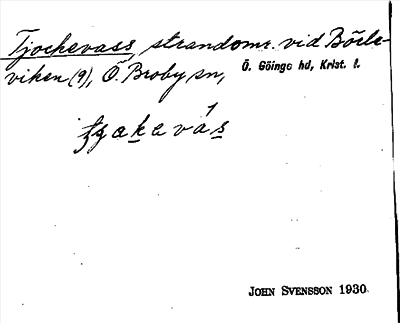 Tjockevass, strandomr. vid Böcle-
viken (9), Ö. Broby sn, Ö. Göinge hd, Krist. l.
John Svensson 1930.